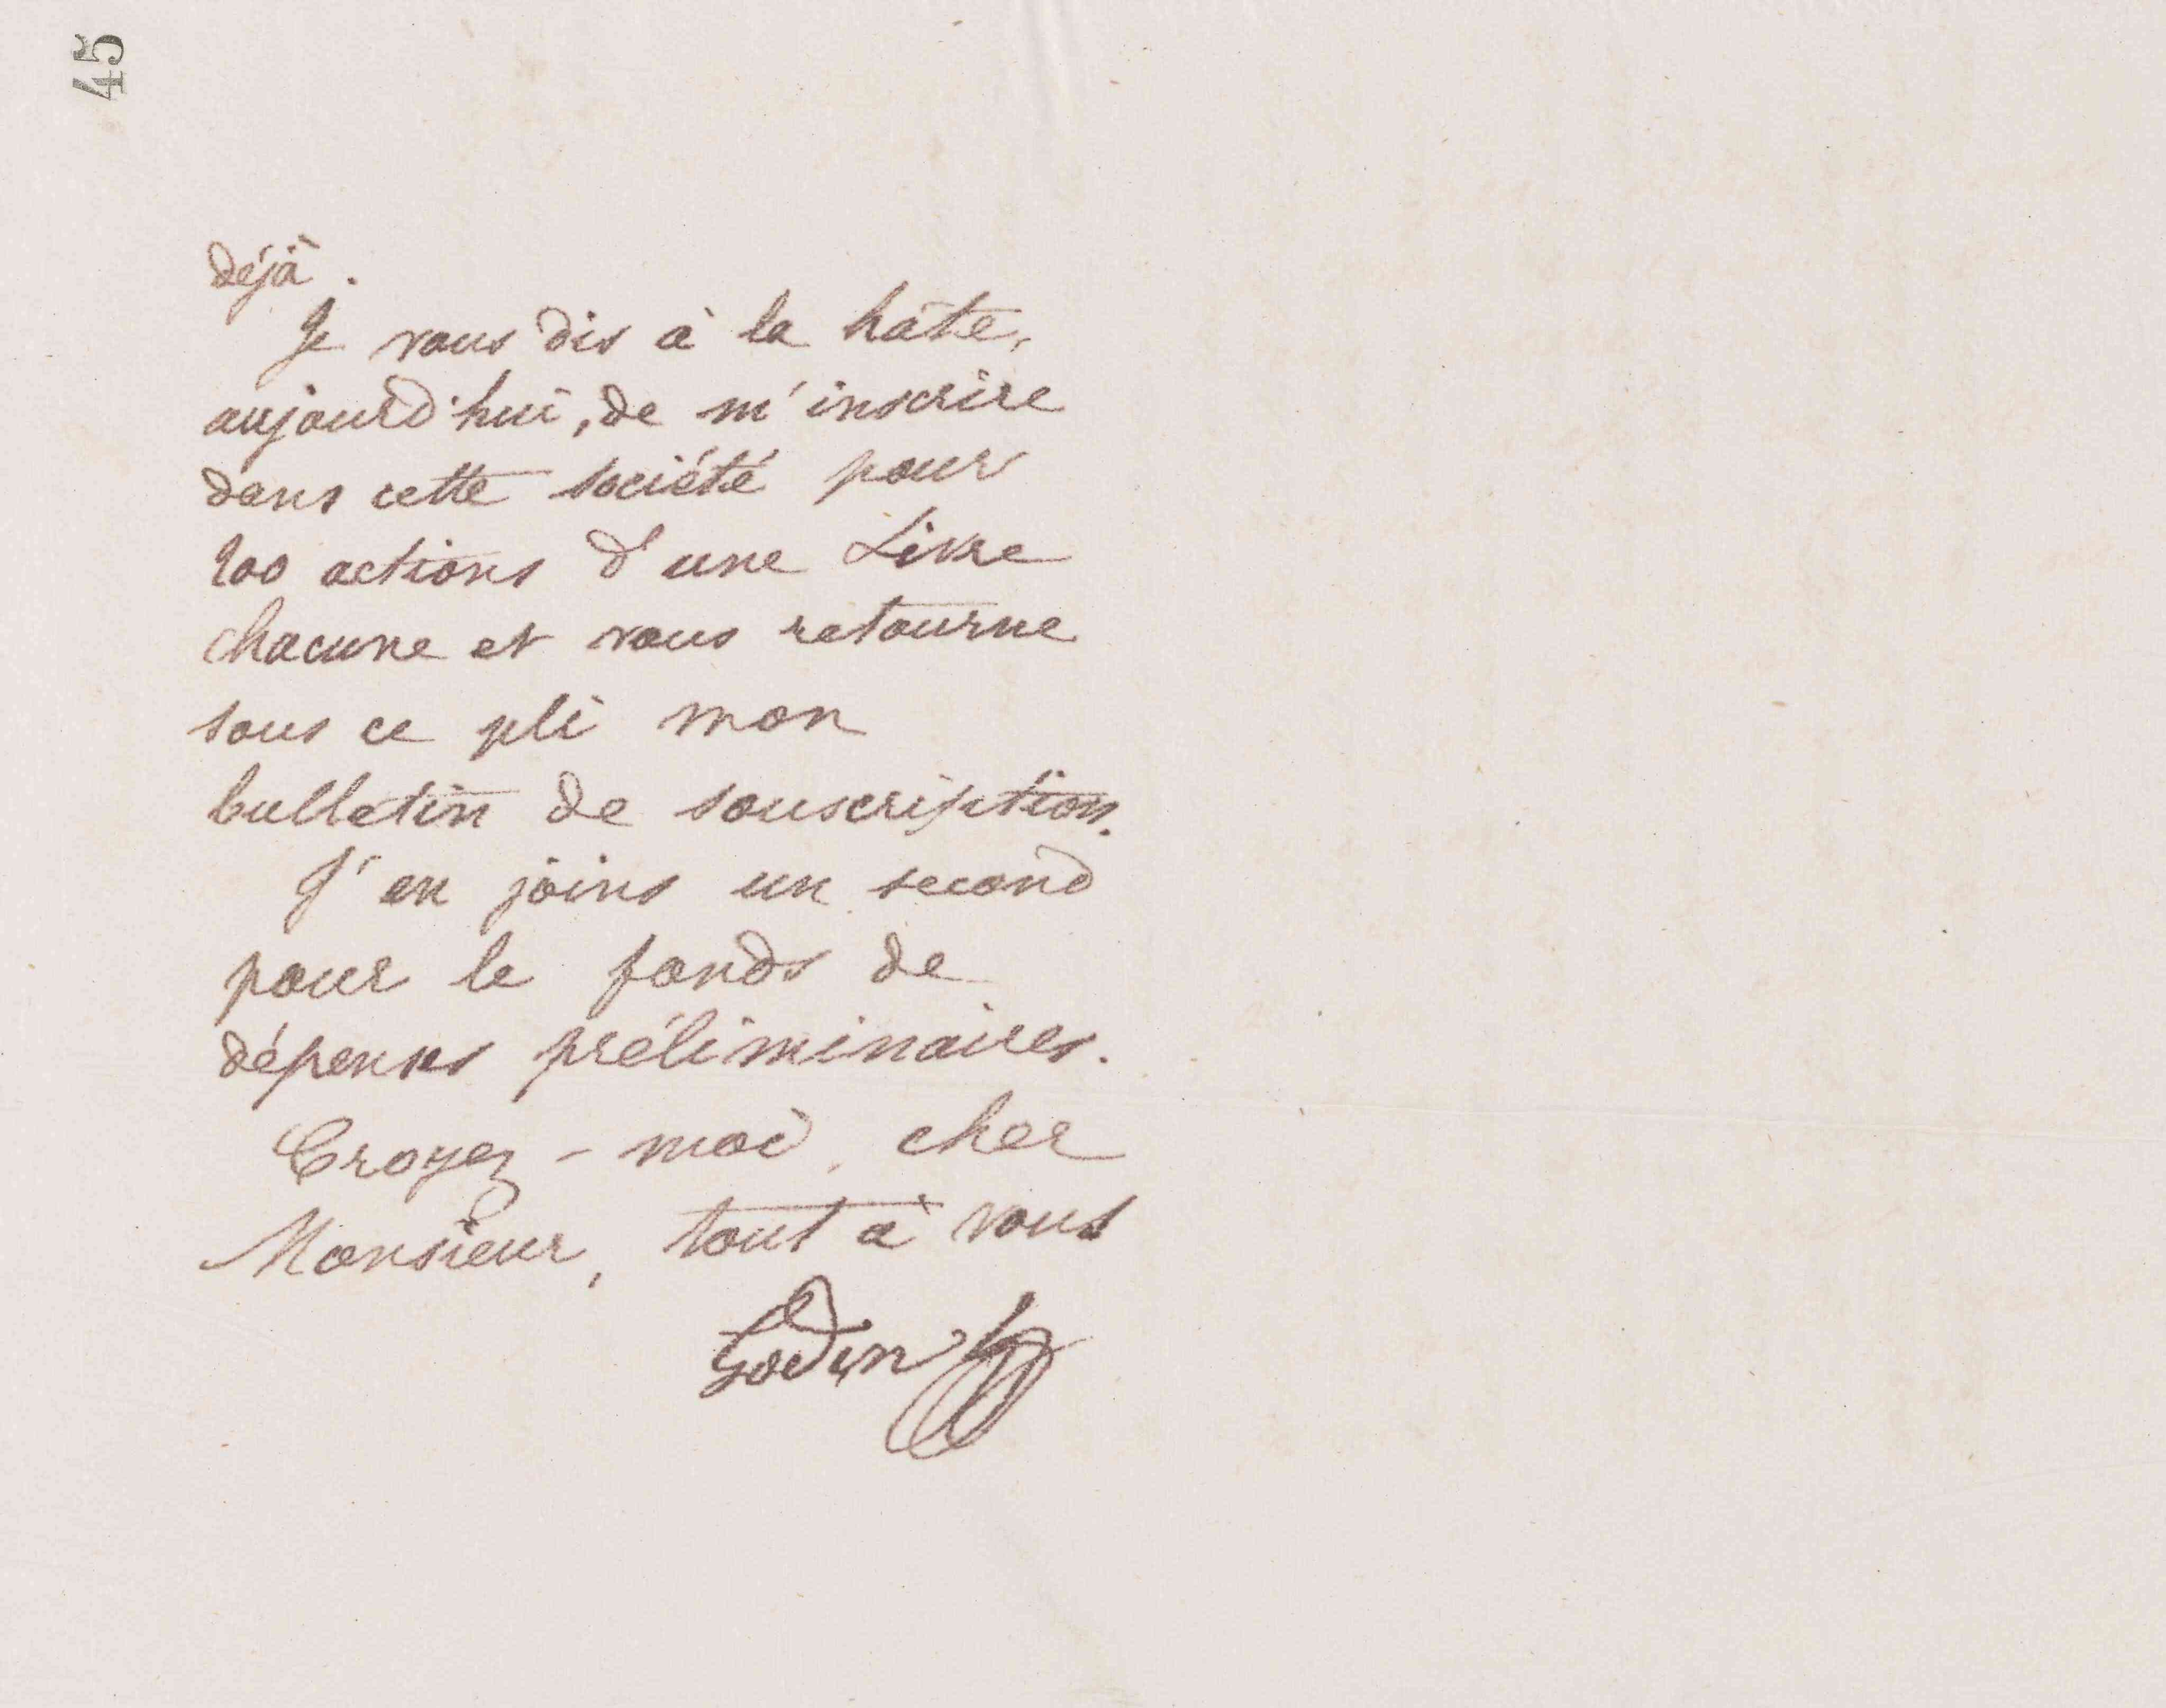 45
déjà.
Je vous dis à la hâte,
aujourd'hui, de m'inscrire
dans cette société pour
200 actions d'une Livre
chacune et vous retourne
sous ce pli mon
bulletin de souscription.
J'en joins un second
pour le fonds de
dépenses préliminaires.
Croyez-moi, cher
Monsieur, tout à vous
Godin